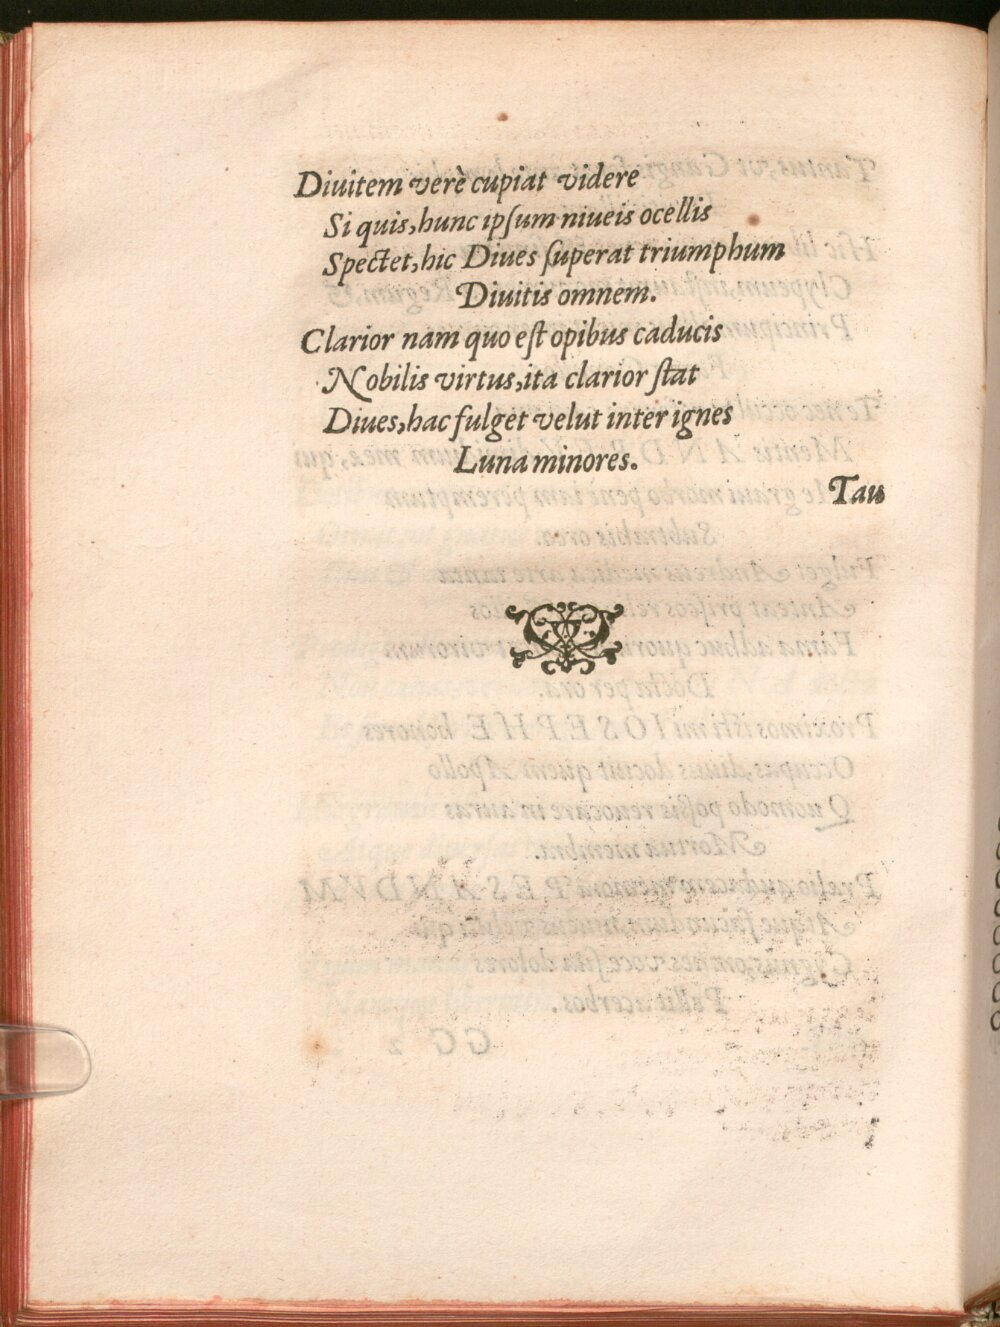 Diuitem verè cupiat videre
Si quis, hunc ipſum niueis ocellis
Spectet, hic Diues ſuperat triumphum
Diuitis omnem.
Clarior nam quo eſt opibus caducis
Nobilis virtus, ita clarior ſtat
Diues, hac fulget velut inter ignes
Luna minores.
Tau